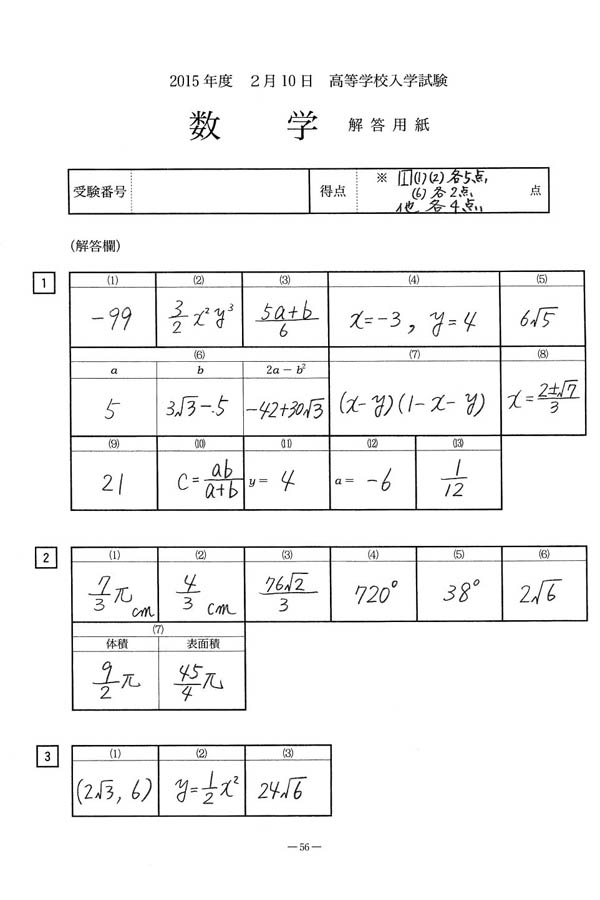 2015年度　2月10日　高等学校入学試験
数　学　解答用紙
受験番号　得点　※ 1 (1)(2) 各5点, 点
(6) 各2点,
他 各4点,,
(解答欄)
1
(1) (2) (3) (4) (5)
-99　3/2 x²y³　(5a+b)/6　x=-3, y=4　6√5
(6) (7) (8)
a　b　2a－b²
5　3√3-5　-42+30√3　(x-y)(1-x-y)　x=(2±√7)/3
(9) (10) (11) (12) (13)
21　c=ab/(a+b)　y= 4　a= -6　1/12
2
(1) (2) (3) (4) (5) (6)
7/3 π cm　4/3 cm　76√2/3　720°　38°　2√6
(7)
体積　表面積
9/2 π　45/4 π
3
(1) (2) (3)
(2√3, 6)　y=1/2 x²　24√6
―56―